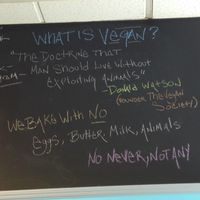 WHAT IS VEGAN?
"THE DOCTRINE THAT
MAN SHOULD LIVE WITHOUT
EXPLOITING ANIMALS"
-Donald WATSON
(FOUNDER, THE VEGAN
SOCIETY)
WE BAKE WITH NO
EGGS, BUTTER, MILK, ANIMALS
NO NEVER, NOT ANY